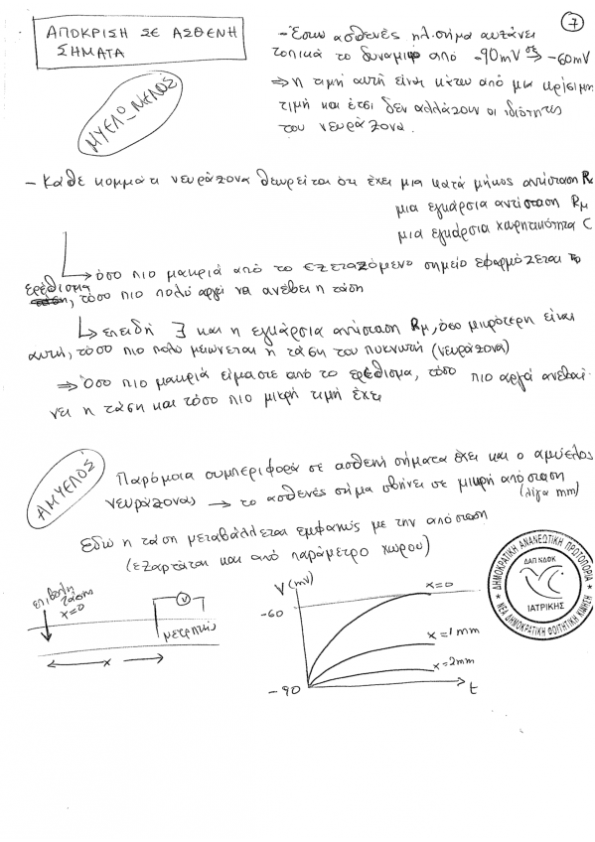 7
ΑΠΟΚΡΙΣΗ ΣΕ ΑΣΘΕΝΗ
ΣΗΜΑΤΑ
- Έστω ασθενές ηλ. σήμα αυξάνει
τοπικά το δυναμικό από -90mV σε → -60mV
⇒ η τιμή αυτή είναι κάτω από μια κρίσιμη
τιμή και έτσι δεν αλλάζουν οι ιδιότητες
του νευράξονα.
ΜΥΕΛΟ_ΜΕΝΟΣ
- Κάθε κομμάτι νευράξονα θεωρείται ότι έχει μια κατά μήκος αντίσταση R
μια εγκάρσια αντίσταση Rμ
μια εγκάρσια χωρητικότητα C
↳ όσο πιο μακριά από το εξεταζόμενο σημείο εφαρμόζεται το
ερέθισμα, τόσο πιο πολύ αργεί να ανέβει η τάση
↳ επειδή ∃ και η εγκάρσια αντίσταση Rμ, όσο μικρότερη είναι
αυτή, τόσο πιο πολύ μειώνεται η τάση του πυκνωτή (νευράξονα)
⇒ Όσο πιο μακριά είμαστε από το ερέθισμα, τόσο πιο αργά ανεβαί-
νει η τάση και τόσο πιο μικρή τιμή έχει
ΑΜΥΕΛΟΣ
Παρόμοια συμπεριφορά σε ασθενή σήματα έχει και ο αμύελος
νευράξονας → το ασθενές σήμα σβήνει σε μικρή απόσταση
(λίγα mm)
Εδώ η τάση μεταβάλλεται εμφανώς με την απόσταση
(εξαρτάται και από παράμετρο χώρου)
επιβολή
τάσης
x=0
V
μετρητής
x
V(mV)
-60
-90
x=0
x=1mm
x=2mm
t
ΔΗΜΟΚΡΑΤΙΚΗ ΑΝΑΝΕΩΤΙΚΗ ΠΡΩΤΟΠΟΡΙΑ
ΔΑΠ ΝΔΦΚ
ΙΑΤΡΙΚΗΣ
ΝΕΑ ΔΗΜΟΚΡΑΤΙΚΗ ΦΟΙΤΗΤΙΚΗ ΚΙΝΗΣΗ